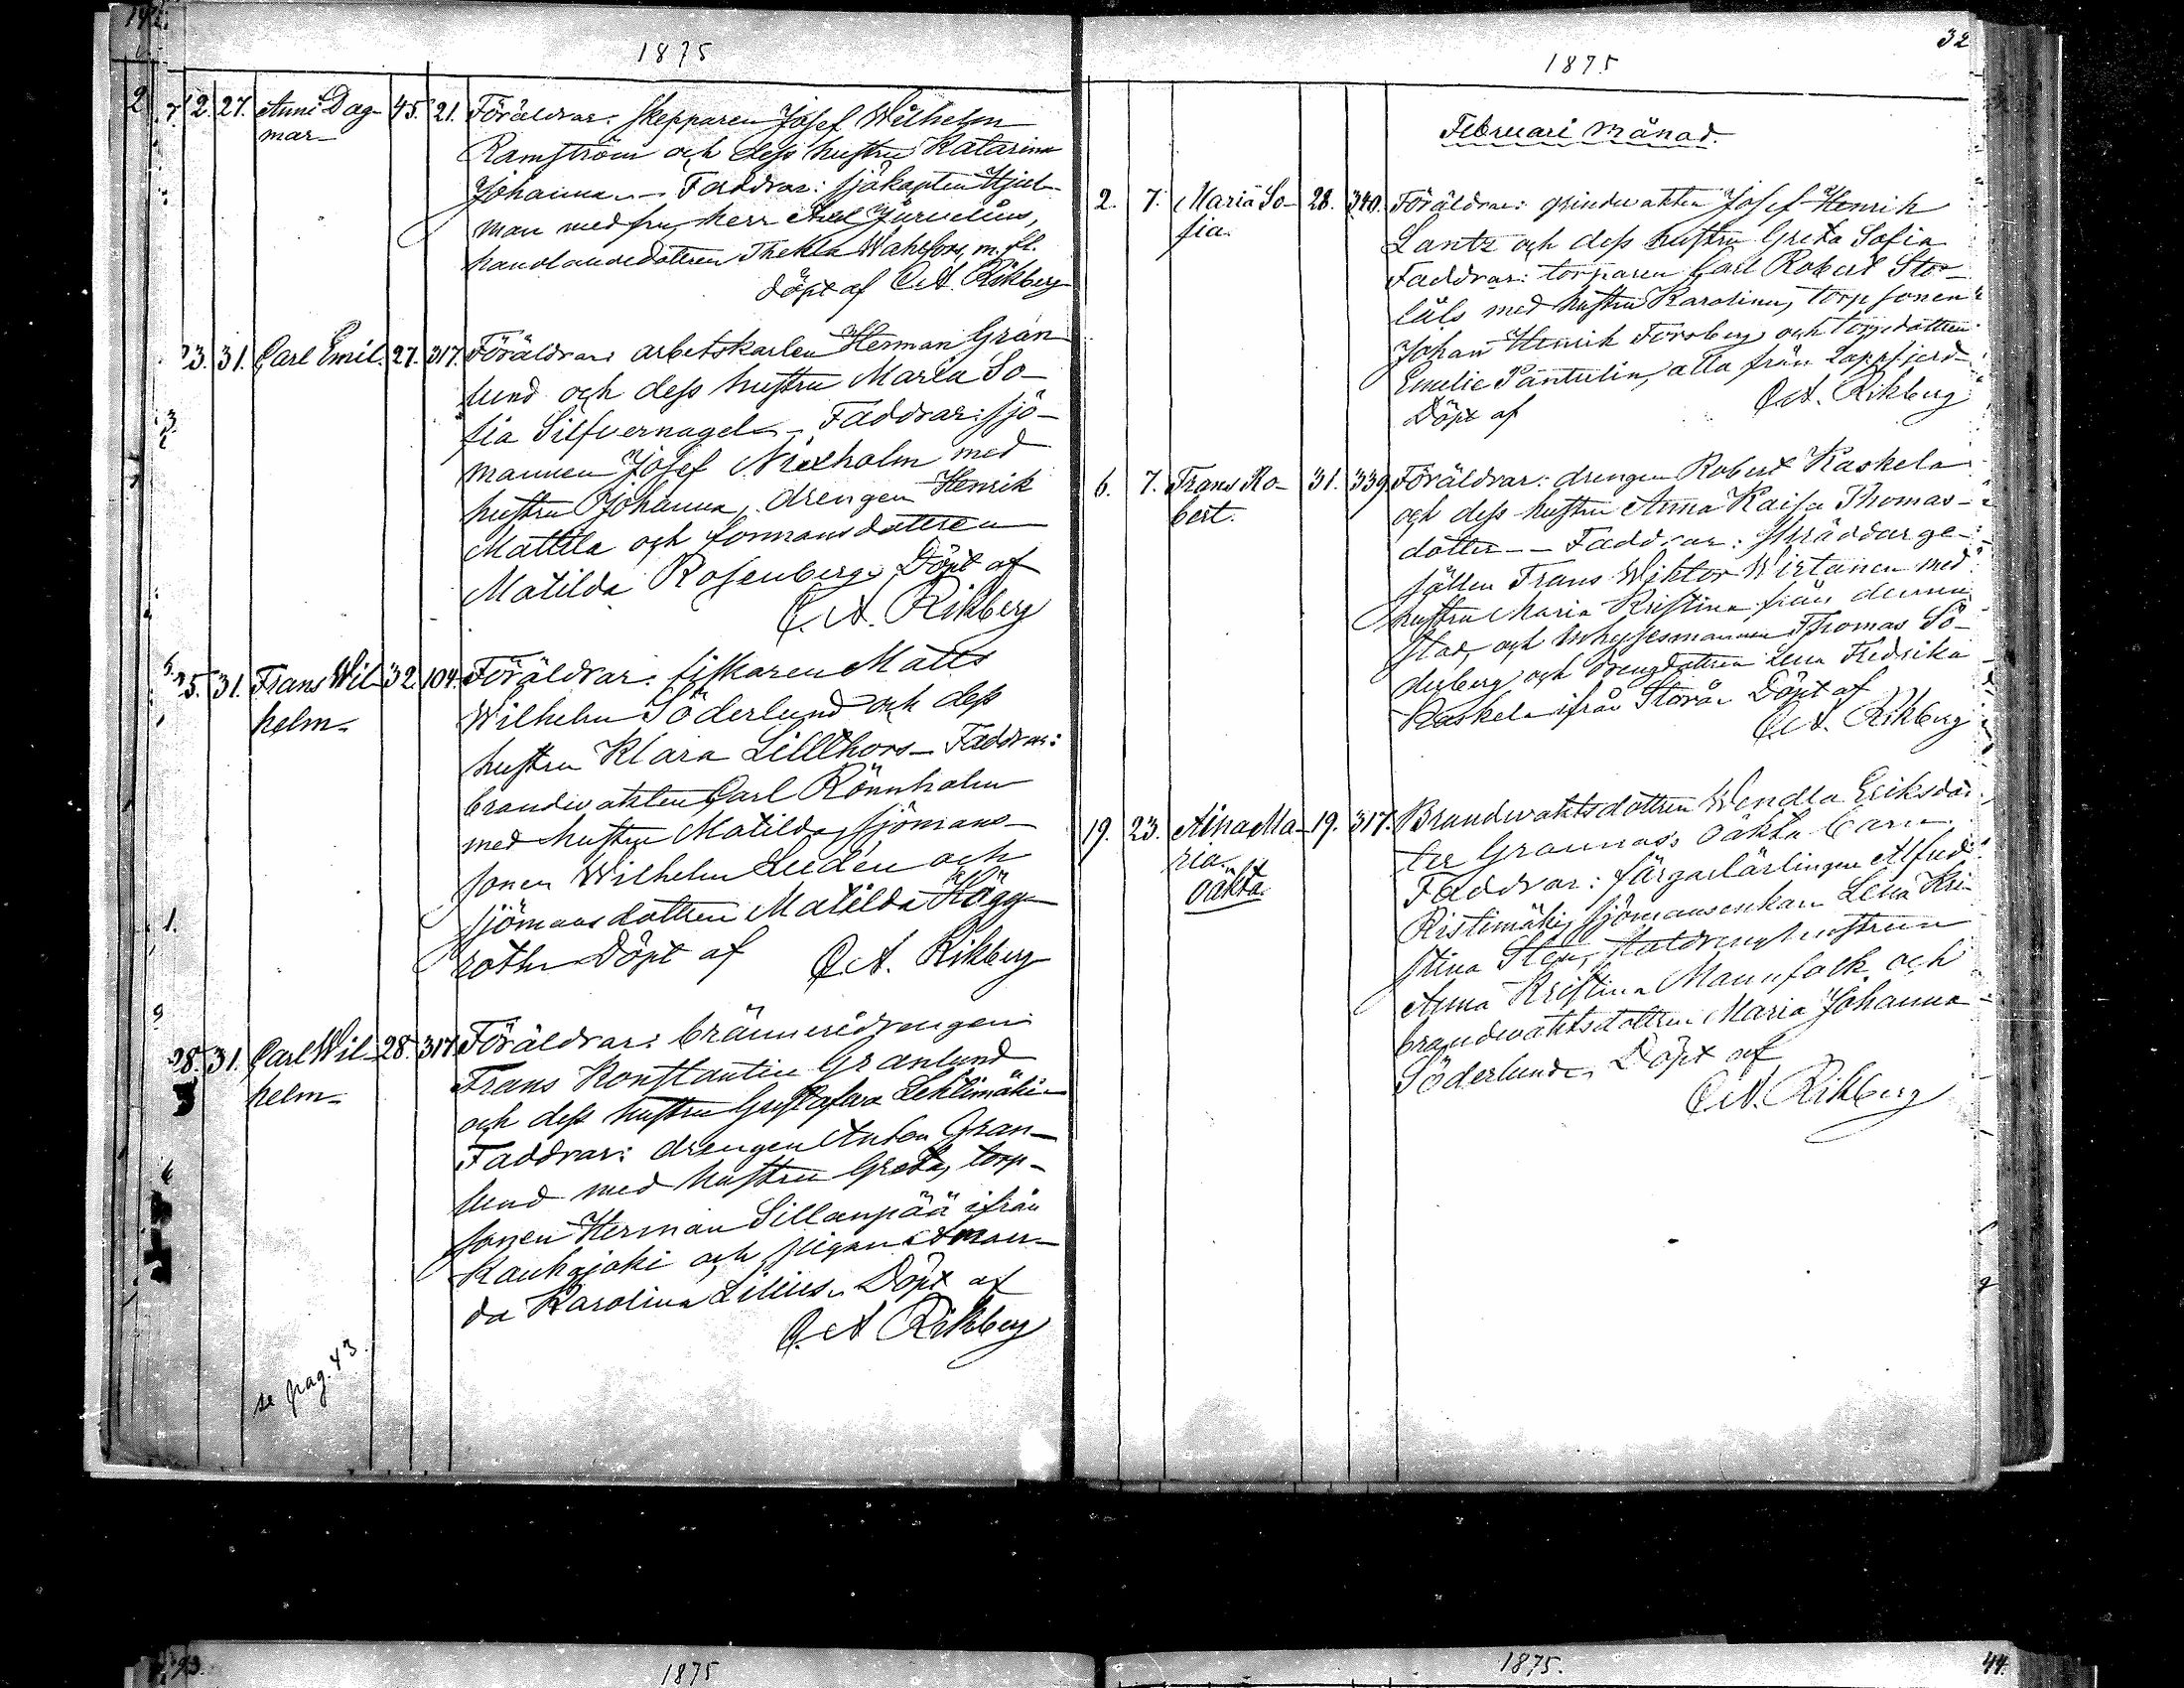 1875
2. 27. Anni Dag- 45. 21. Föräldrar: skepparen Josef Wilhelm
mar Ramström och dess hustru Katarina
Johanna. Faddrar: sjökapten Hjul-
man med fru, herr Axel
handlandedottren Thekla Wahlfors, m. fl.
döpt af C. A. Rikberg
23. 31. Carl Emil. 27. 317. Föräldrar: arbetskarlen Herman Gran
lund och dess hustru Maria So-
fia Silfvernagel. Faddrar: sjö-
mannen Josef Nixholm med
hustru Johanna, drengen Henrik
Mattila och formansdottren
Matilda Rosenberg. Döpt af
C. A. Rikberg
25. 31. Frans Wil- 32. 104. Föräldrar: fiskaren Matts
helm Wilhelm Söderlund och dess
hustru Klara Lillthors. Faddrar:
brandvakten Carl Rönnholm
med hustru Matilda, sjömans-
sonen Wilhelm Lidén och
sjömansdottren Matilda Högg
roth. Döpt af C. A. Rikberg
28. 31. Carl Wil- 28. 317. Föräldrar: bränneridrengen
helm Frans Konstantin Granlund
och dess hustru Gustafva Lehtimäki
Faddrar: drengen Anton Gran-
lund med hustru Greta, torp-
sonen Herman Sillanpää ifrån
Kauhajoki och pigan Aman-
da Karolina Lilius. Döpt af
C. A. Rikberg
se pag. 43.
32
1875.
Februari månad.
2. 7. Maria So- 28. 340. Föräldrar: grindvakten Josef Henrik
fia. Lantz och dess hustru Greta Sofia
Faddrar: torparen Carl Robert Stor-
luls med hustru Karolina, torpsonen
Johan Henrik Forsberg och torpdottren
Emelie Päntulin, alla från Lappfjerd
Döpt af C. A. Rikberg
6. 7. Frans Ro- 31. 339. Föräldrar: drengen Robert Kaskela
bert. och dess hustru Anna Kaisa Thomas-
dotter. Faddrar: skräddarge-
sällen Frans Wiktor Wirtanen med
hustru Maria Kristina från denna
stad, och inhysesmannen Thomas Sö-
derberg och drengdottren Lena Fredrika
Kaskela ifrån Storå. Döpt af
C. A. Rikberg
19. 23. Aina Ma- 19. 317. Brandvaktsdottren Wendla Eriksdot-
ria. ter Grannas, oäkta barn.
oäkta. Faddrar: färgarlärlingen Alfred
Ristimäki, sjömansenkan Lena Kri-
stina Sten, staldrenghustrun
Anna Kristina Mannfolk och
brandvaktsdottren Maria Johanna
Söderlund. Döpt af
C. A. Rikberg
93. 1875
1875. 44.